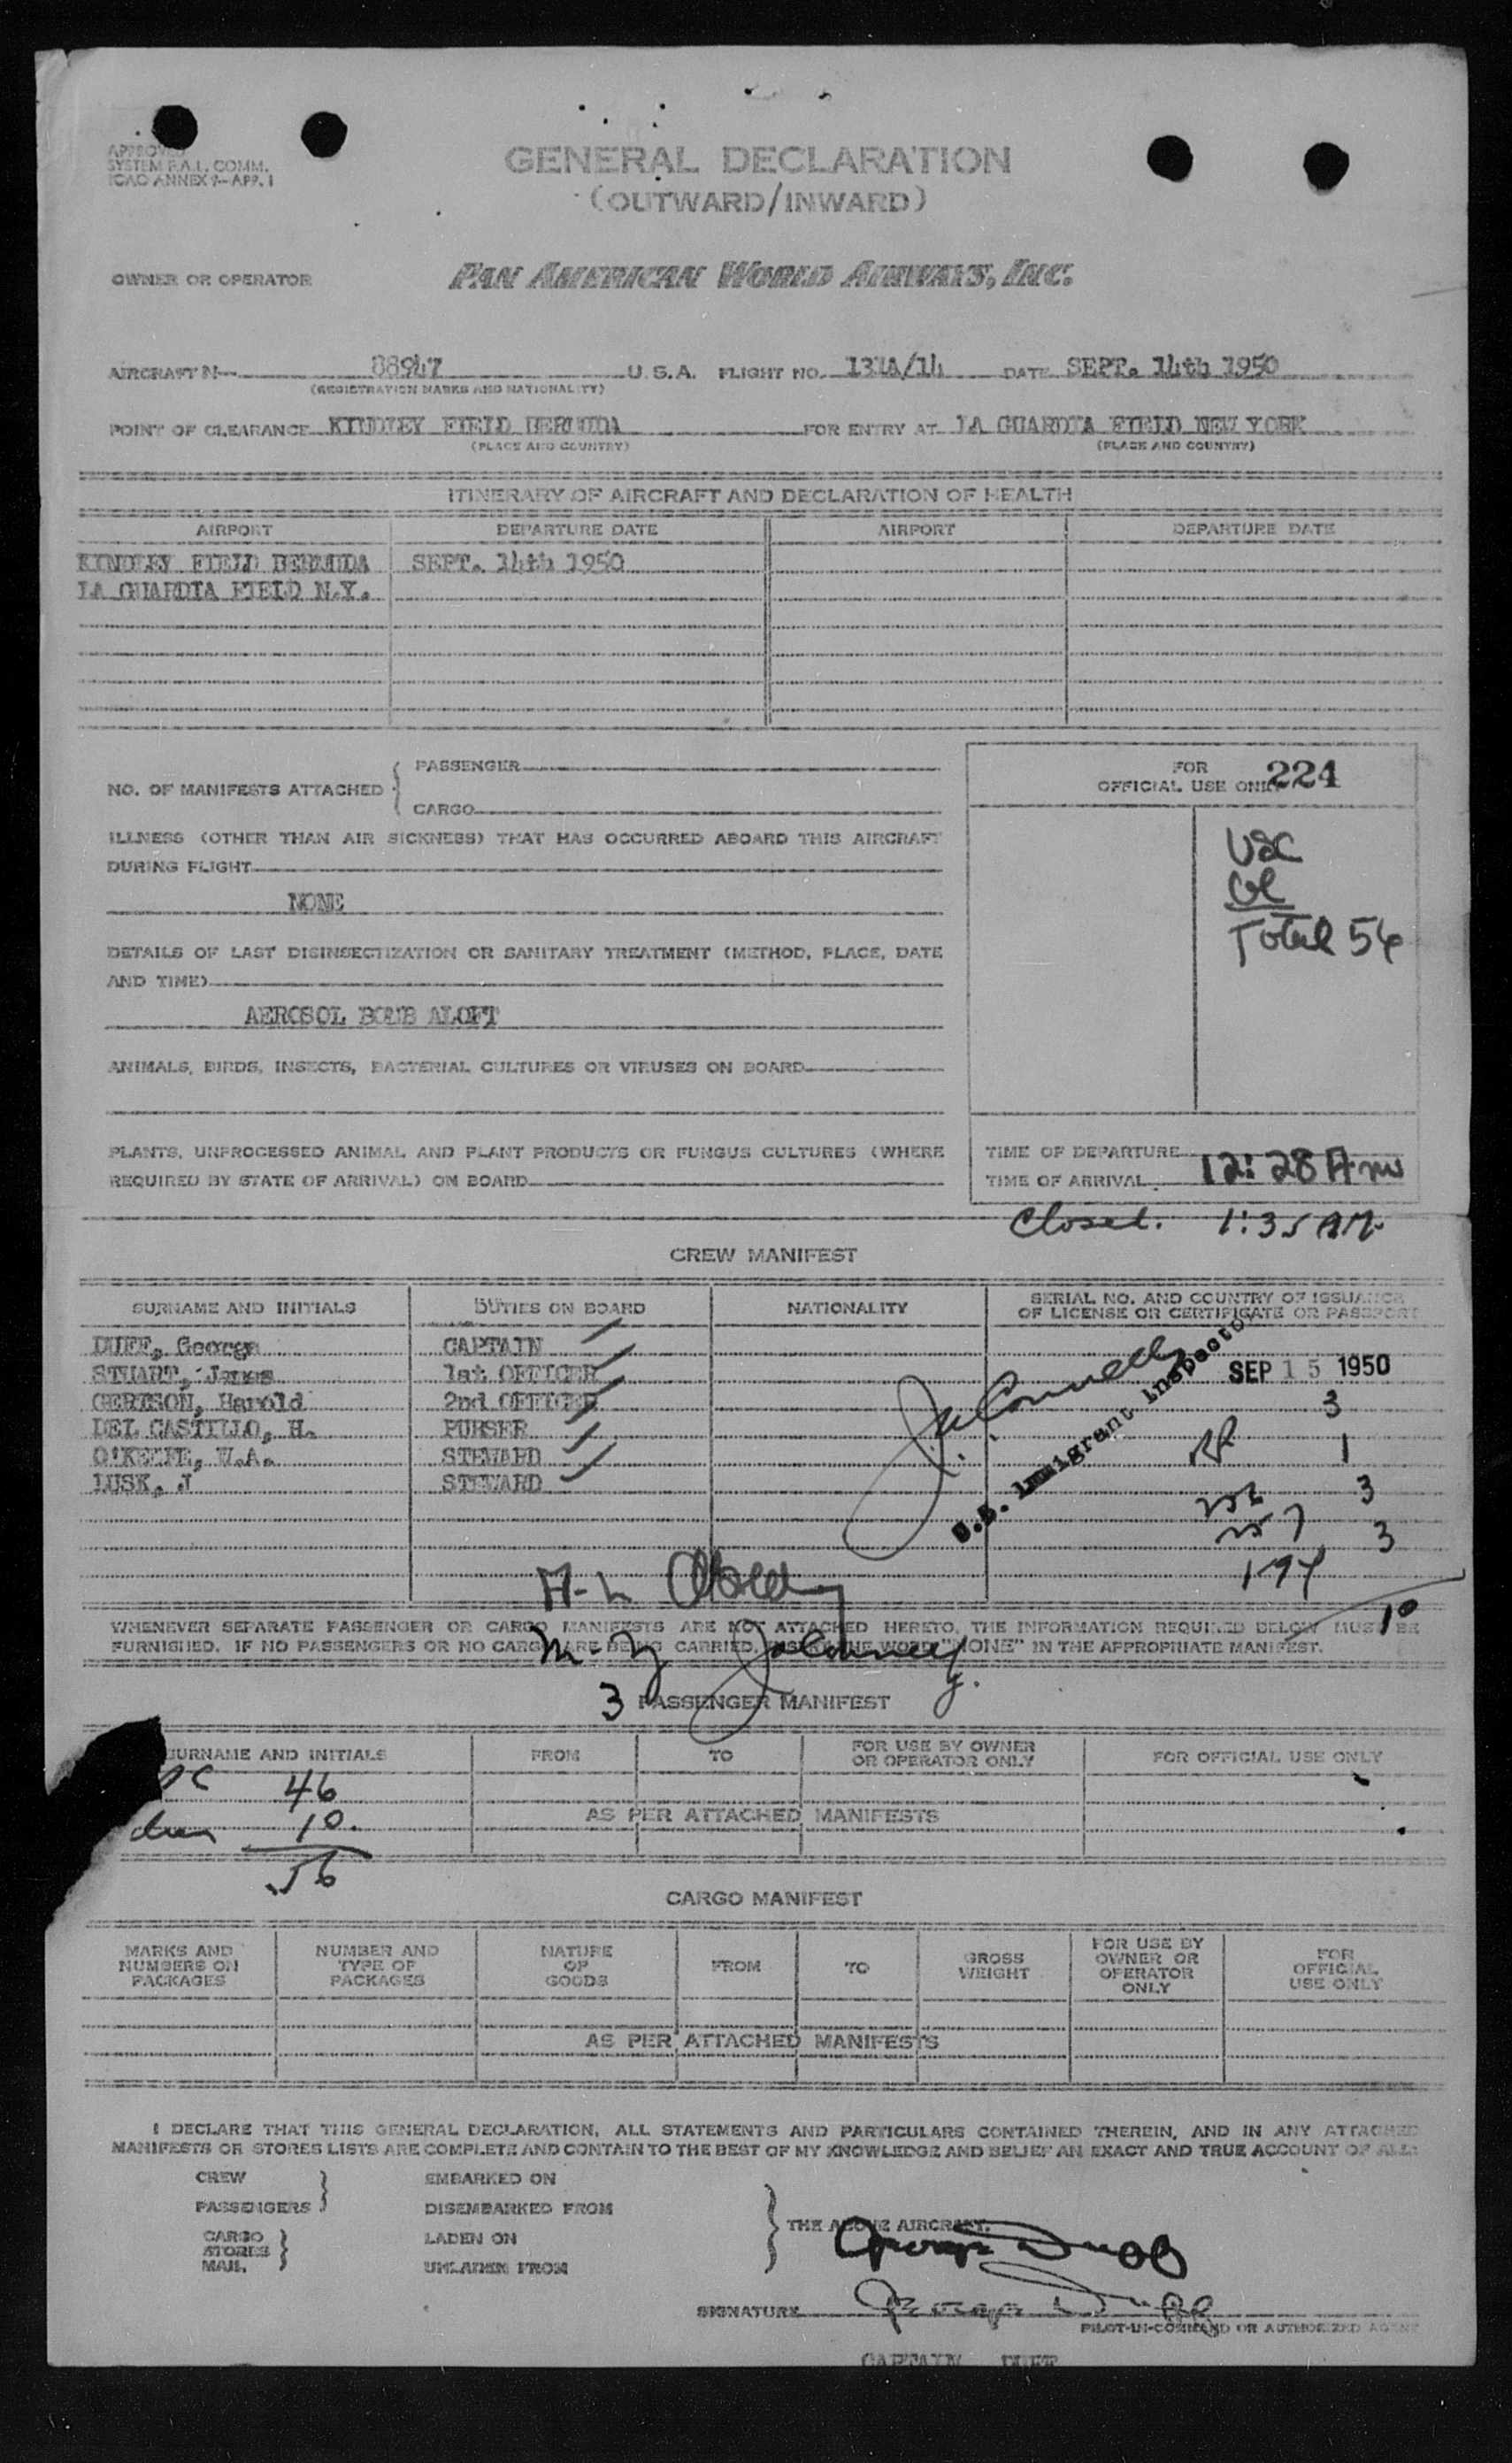 APPROVED
SYSTEM F.A.L. COMM.
ICAO ANNEX 9-APP. 1
GENERAL DECLARATION
(OUTWARD/INWARD)
OWNER OR OPERATOR PAN AMERICAN WORLD AIRWAYS, INC.
AIRCRAFT N- 88947 U.S.A. FLIGHT NO. 131A/14 DATE SEPT. 14th 1950
(REGISTRATION MARKS AND NATIONALITY)
POINT OF CLEARANCE KINDLEY FIELD BERMUDA FOR ENTRY AT LA GUARDIA FIELD NEW YORK
(PLACE AND COUNTRY) (PLACE AND COUNTRY)
ITINERARY OF AIRCRAFT AND DECLARATION OF HEALTH
AIRPORT DEPARTURE DATE AIRPORT DEPARTURE DATE
KINDLEY FIELD BERMUDA SEPT. 14th 1950
LA GUARDIA FIELD N.Y.
NO. OF MANIFESTS ATTACHED { PASSENGER
CARGO
FOR
OFFICIAL USE ONLY 224
ILLNESS (OTHER THAN AIR SICKNESS) THAT HAS OCCURRED ABOARD THIS AIRCRAFT
DURING FLIGHT
NONE
USC
Total 56
DETAILS OF LAST DISINSECTIZATION OR SANITARY TREATMENT (METHOD, PLACE, DATE
AND TIME)
AEROSOL BOMB ALOFT
ANIMALS, BIRDS, INSECTS, BACTERIAL CULTURES OR VIRUSES ON BOARD
PLANTS, UNPROCESSED ANIMAL AND PLANT PRODUCTS OR FUNGUS CULTURES (WHERE
REQUIRED BY STATE OF ARRIVAL) ON BOARD
TIME OF DEPARTURE
TIME OF ARRIVAL 12:28 Am
Closed. 1:35 AM
CREW MANIFEST
SURNAME AND INITIALS DUTIES ON BOARD NATIONALITY SERIAL NO. AND COUNTRY OF ISSUANCE
OF LICENSE OR CERTIFICATE OR PASSPORT
DUFF, George CAPTAIN
STUART, James 1st OFFICER SEP 15 1950
GERTSON, Harold 2nd OFFICER 3
DEL CASTILLO, H. PURSER 1
O'KEEFE, W.A. STEWARD 3
LUSK, J STEWARD 3
U.S. Immigrant Inspector
10
WHENEVER SEPARATE PASSENGER OR CARGO MANIFESTS ARE NOT ATTACHED HERETO, THE INFORMATION REQUIRED BELOW MUST BE
FURNISHED. IF NO PASSENGERS OR NO CARGO ARE BEING CARRIED, INSERT THE WORD "NONE" IN THE APPROPRIATE MANIFEST.
3 PASSENGER MANIFEST
SURNAME AND INITIALS FROM TO FOR USE BY OWNER
OR OPERATOR ONLY FOR OFFICIAL USE ONLY
46
10.
AS PER ATTACHED MANIFESTS
56
CARGO MANIFEST
MARKS AND
NUMBERS ON
PACKAGES NUMBER AND
TYPE OF
PACKAGES NATURE
OF
GOODS FROM TO GROSS
WEIGHT FOR USE BY
OWNER OR
OPERATOR
ONLY FOR
OFFICIAL
USE ONLY
AS PER ATTACHED MANIFESTS
I DECLARE THAT THIS GENERAL DECLARATION, ALL STATEMENTS AND PARTICULARS CONTAINED THEREIN, AND IN ANY ATTACHED
MANIFESTS OR STORES LISTS ARE COMPLETE AND CONTAIN TO THE BEST OF MY KNOWLEDGE AND BELIEF AN EXACT AND TRUE ACCOUNT OF ALL:
CREW EMBARKED ON
PASSENGERS DISEMBARKED FROM
THE ABOVE AIRCRAFT.
CARGO LADEN ON
STORES
MAIL UNLADEN FROM
George Duff
SIGNATURE George Duff
PILOT-IN-COMMAND OR AUTHORIZED AGENT
CAPTAIN DUFF